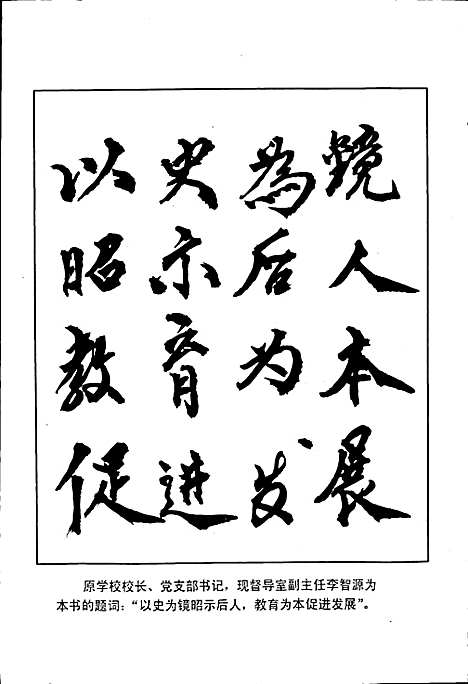 以史為鏡
昭示后人
教育为本
促进发展
原学校校长、党支部书记，现督导室副主任李智源为
本书的题词：“以史为镜昭示后人，教育为本促进发展”。